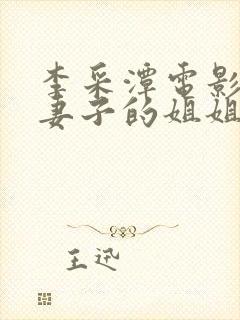 李采潭電影
妻子的姐姐
王迅